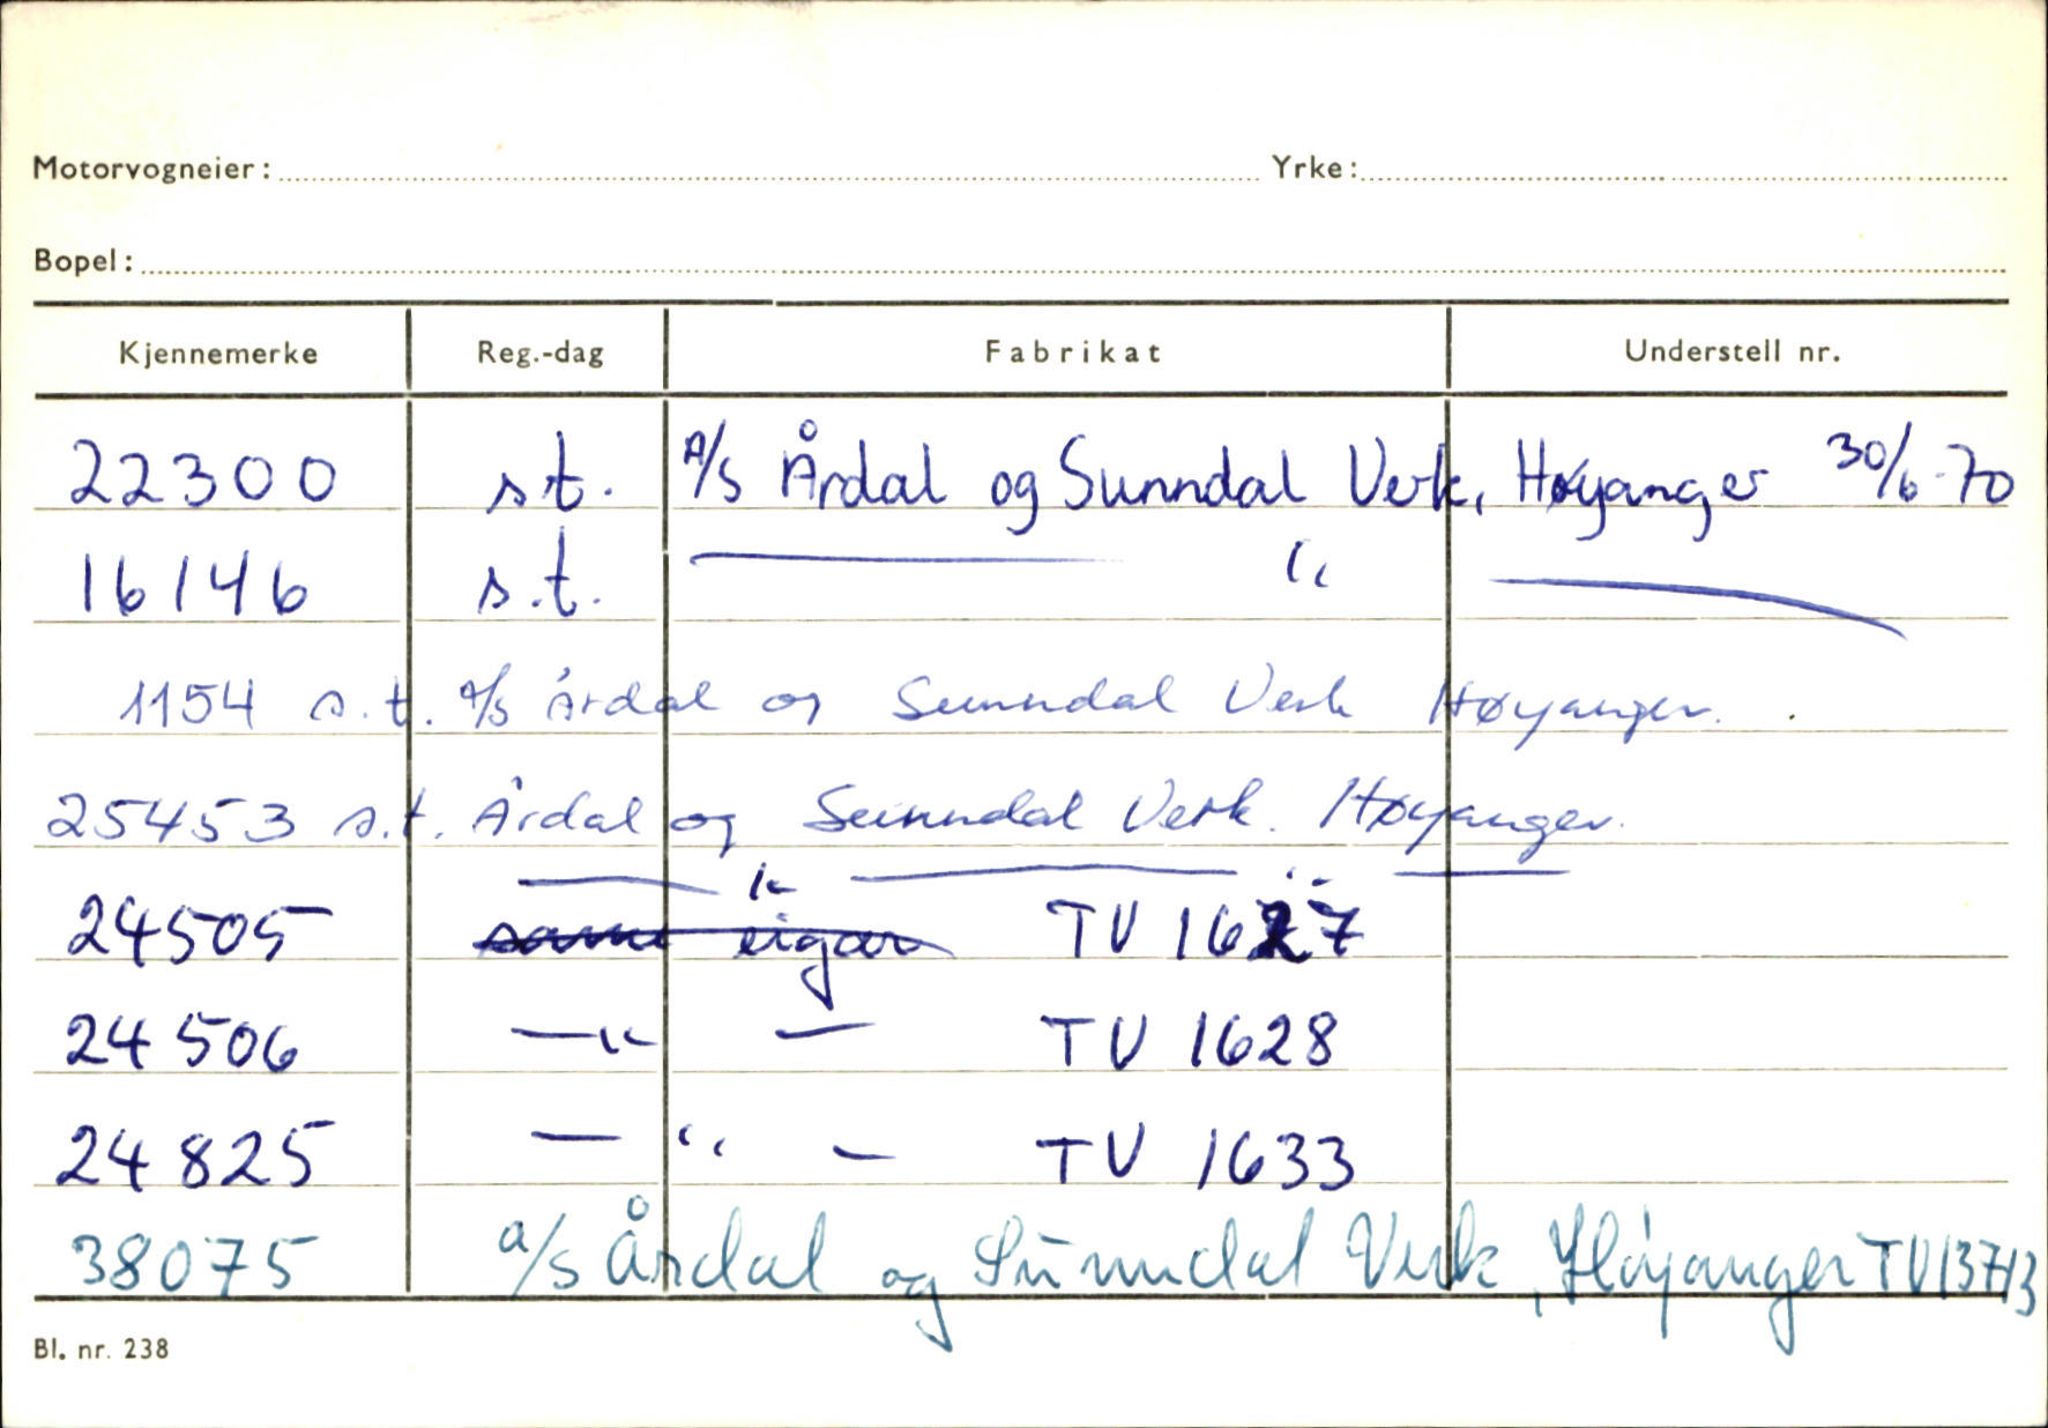 Motorvogneier: Yrke:
Bopel:
Kjennemerke Reg.-dag Fabrikat Understell nr.
22300 s.t. A/S Årdal og Sunndal Verk, Høyanger 30/6-70
16146 s.t. — " —
1154 s.t. A/S Årdal og Sunndal Verk Høyanger.
25453 s.t. Årdal og Sunndal Verk. Høyanger.
— " — — " —
24505 same eigar TV 1627
24506 — " — TV 1628
24825 — " — TV 1633
38075 a/s Årdal og Sunndal Verk, Høyanger TV
Bl. nr. 238